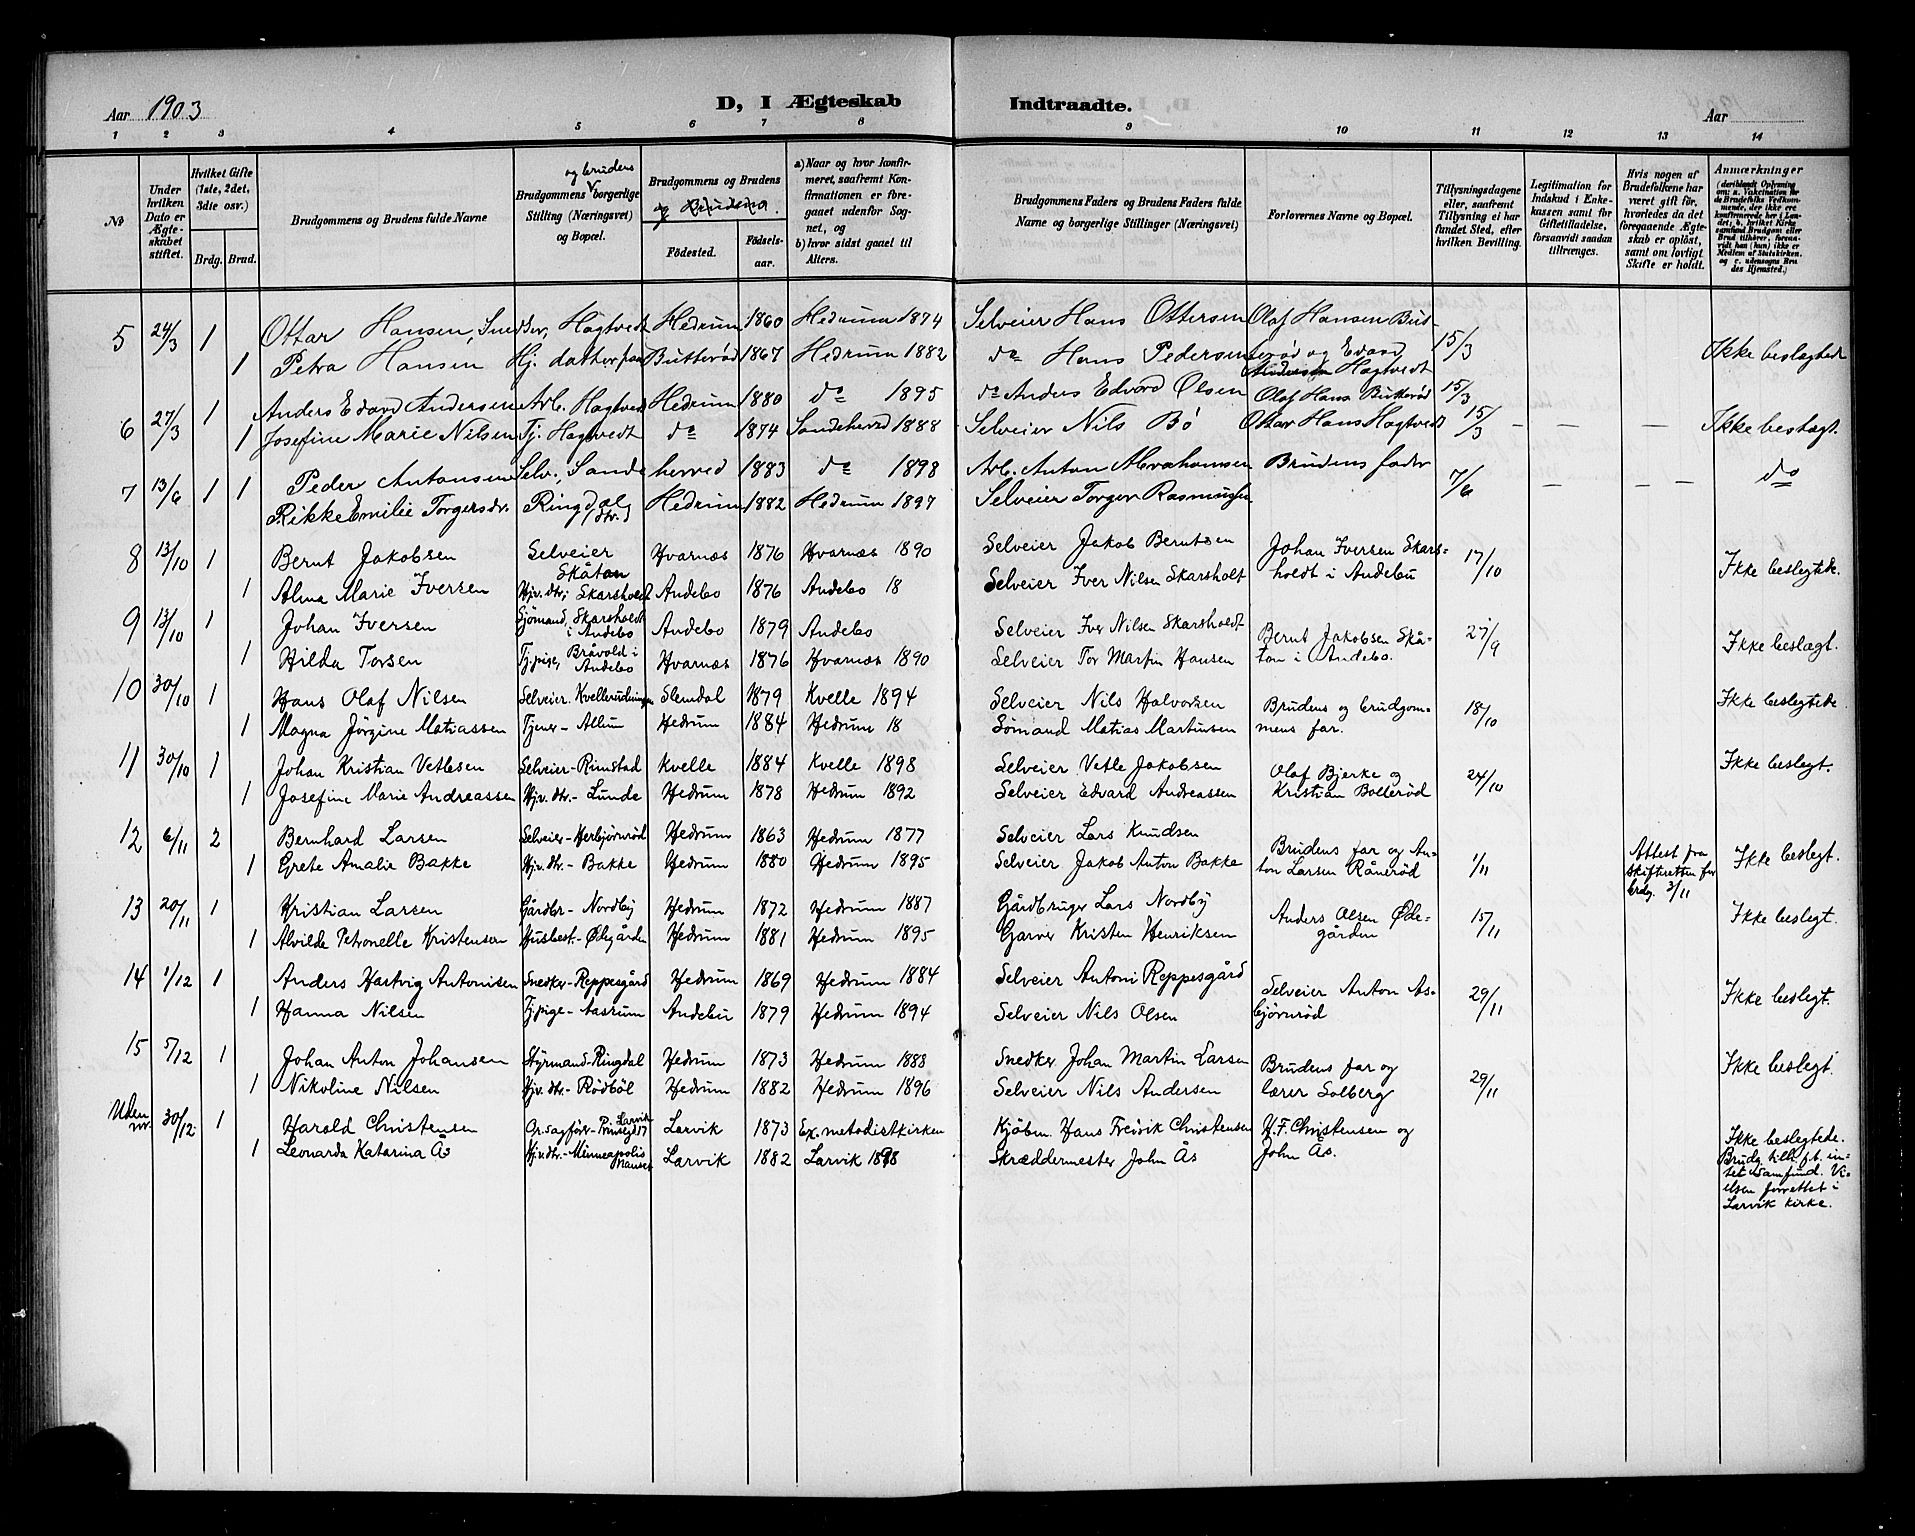 Aar 1903 D, I Ægteskab Indtraadte. Aar
1 2 3 4 5 6 7 8 9 10 11 12 13 14
No
Under hvilken Dato er Ægteskabet stiftet.
Hvilket Gifte (1ste, 2det, 3die osv.)
Brdg. Brud.
Brudgommens og Brudens fulde Navne
Brudgommens og brudens borgerlige Stilling (Næringsvei) og Bopæl.
Brudgommens og Brudens
Fødested. Fødselsaar.
a) Naar og hvor konfirmeret, saafremt Konfirmationen er foregaaet udenfor Sognet, og
b) hvor sidst gaaet til Alters.
Brudgommens Faders og Brudens Faders fulde Navne og borgerlige Stillinger (Næringsvei)
Forlovernes Navne og Bopæl.
Tillysningsdagene eller, saafremt Tillysning ei har fundet Sted, efter hvilken Bevilling.
Legitimation for Indskud i Enkekassen samt for Giftetilladelse, forsaavidt saadan tiltrænges.
Hvis nogen af Brudefolkene har været gift før, hvorledes da det foregaaende Ægteskab er opløst, samt om lovligt Skifte er holdt.
Anmærkninger
5 24/3 1 Ottar Hansen, Snedker, Hagtvedt Hedrum 1860 Hedrum 1874 Selveier Hans Ottersen Olaf Hansen But-
1 Petra Hansen Hj. datter paa Butterød 1867 Hedrum 1882 do Hans Pedersen terød og Edvard Andersen Hagtvedt 15/3 Ikke beslægtede
6 27/3 1 Anders Edvard Andersen Arb. Hagtvedt Hedrum 1880 do 1895 do Anders Edvard Olsen Olaf Hans. Butterød 15/3
1 Josefine Marie Nilsen Tj. Hagtvedt do 1874 Sandeherred 1888 Selveier Nils Bø Ottar Hans Hagtvedt 15/3 – – – Ikke beslægt.
7 13/6 1 1 Peder Antonsen Selv., Sandeherred 1883 do 1898 Arb. Anton Abrahamsen Brudens fader 7/6 – – – do
Rikke Emilie Torgersdr. Ringdal (dtr.) Hedrum 1882 Hedrum 1897 Selveier Torger Rasmussen
8 13/10 1 Bernt Jakobsen Selveier Skåtan Hvarnæs 1876 Hvarnæs 1890 Selveier Jakob Berntsen Johan Iversen Skars- 17/10 Ikke beslegtede.
1 Alma Marie Iversen Hjv. dtr., Skarsholdt Andebo 1876 Andebo 18 Selveier Iver Nilsen Skarsholt holdt i Andebu
9 13/10 1 Johan Iversen Sjømand, Skarsholdt i Andebo Andebo 1879 Andebo Selveier Iver Nilsen Skarsholdt Bernt Jakobsen Skå- 27/9 Ikke beslægt.
1 Hilda Torsen Tj.pige, Bråvold i Andebo Hvarnæs 1876 Hvarnæs 1890 Selveier Tor Martin Hansen ton i Andebo.
10 30/10 1 Hans Olaf Nilsen Selveier. Kvellerudningen Slemdal 1879 Kvelle 1894 Selveier Nils Halvorsen Brudens og brudgom- 18/10 Ikke beslegtede
1 Magna Jörgine Matiassen Tjener – Allum Hedrum 1884 Hedrum 18 Sømand Matias Martinsen mens far.
11 30/10 1 Johan Kristian Vetlesen Selveier – Rimstad Kvelle 1884 Kvelle 1898 Selveier Vetle Jakobsen Olaf Bjerke og 24/10 Ikke beslegt.
1 Josefine Marie Andreassen Hjv. dtr. – Lunde Hedrum 1878 Hedrum 1892 Selveier Edvard Andreassen Kristian Bollerød
12 6/11 2 Bernhard Larsen Selveier – Herbjørnrød Hedrum 1863 Hedrum 1877 Selveier Lars Knudsen Brudens far og An- 1/11 Attest fra skifteretten for brdg. 3/11 Ikke beslegt.
1 Grete Amalie Bakke Hjv. dtr. – Bakke Hedrum 1880 Hedrum 1895 Selveier Jakob Anton Bakke ton Larsen Rånerød
13 20/11 1 Kristian Larsen Gårdbr – Nordby Hedrum 1872 Hedrum 1887 Gårdbruger Lars Nordby Anders Olsen Øde- 15/11 Ikke beslegt.
1 Alvilde Petronelle Kristensen Husbest. – Ødegården Hedrum 1881 Hedrum 1895 Garver Kristen Henriksen gården
14 1/12 1 Anders Hartvig Antonisen Snedker – Reppesgård Hedrum 1869 Hedrum 1884 Selveier Antoni Reppesgård Selveier Anton As- 29/11 Ikke beslegt.
1 Hanna Nilsen Tj.pige – Aasrum Andebu 1879 Hedrum 1894 Selveier Nils Olsen björnröd
15 5/12 1 Johan Anton Johansen Styrmand – Ringdal Hedrum 1873 Hedrum 1888 Snedker Johan Martin Larsen Brudens far og 29/11 Ikke beslegt.
1 Nikoline Nilsen Hjv. dtr. – Rödböl Hedrum 1882 Hedrum 1896 Selveier Nils Andersen lærer Solberg
Uden nr. 30/12 1 Harold Christensen Larvik Larvik 1873 Ex. metodistkirken Kjøbm. Hans Fredvik Christensen H.F. Christensen og Ikke beslegtede.
1 Leonarda Katarina Ås Hjv. dtr. – Minneapolis Larvik 1882 Larvik 1898 Skræddermester John Ås John Ås. Brudg. tilh. f.t. in-
tet samfund. Vi-
elsen forrettet i
Larvik kirke.